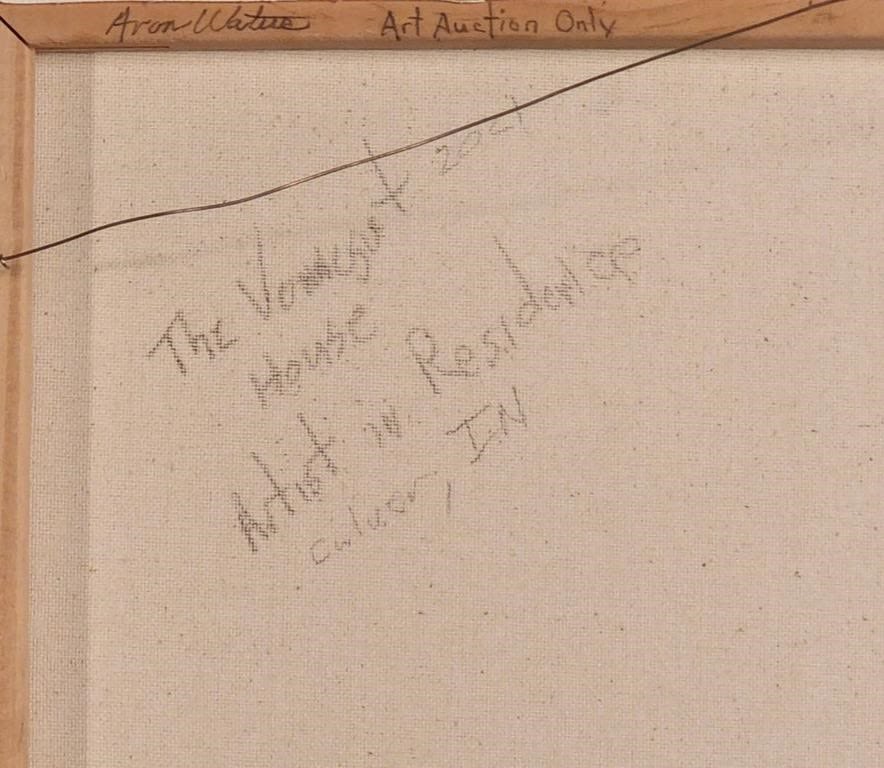 Aron Art Auction Only
The Vonnegut 2021
House
Artist in Residence
Culver, IN